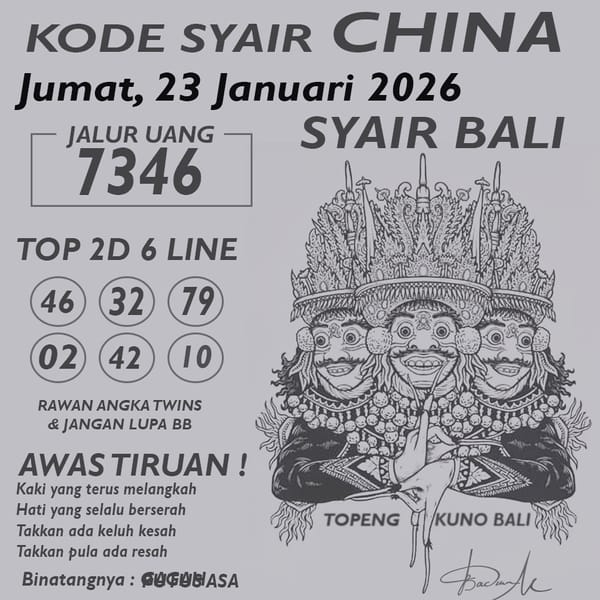 KODE SYAIR CHINA
Jumat, 23 Januari 2026
SYAIR BALI
JALUR UANG
7346
TOP 2D 6 LINE
46 32 79
02 42 10
RAWAN ANGKA TWINS
& JANGAN LUPA BB
AWAS TIRUAN !
Kaki yang terus melangkah
Hati yang selalu berserah
Takkan ada keluh kesah
Takkan pula ada resah
Binatangnya :
TOPENG KUNO BALI